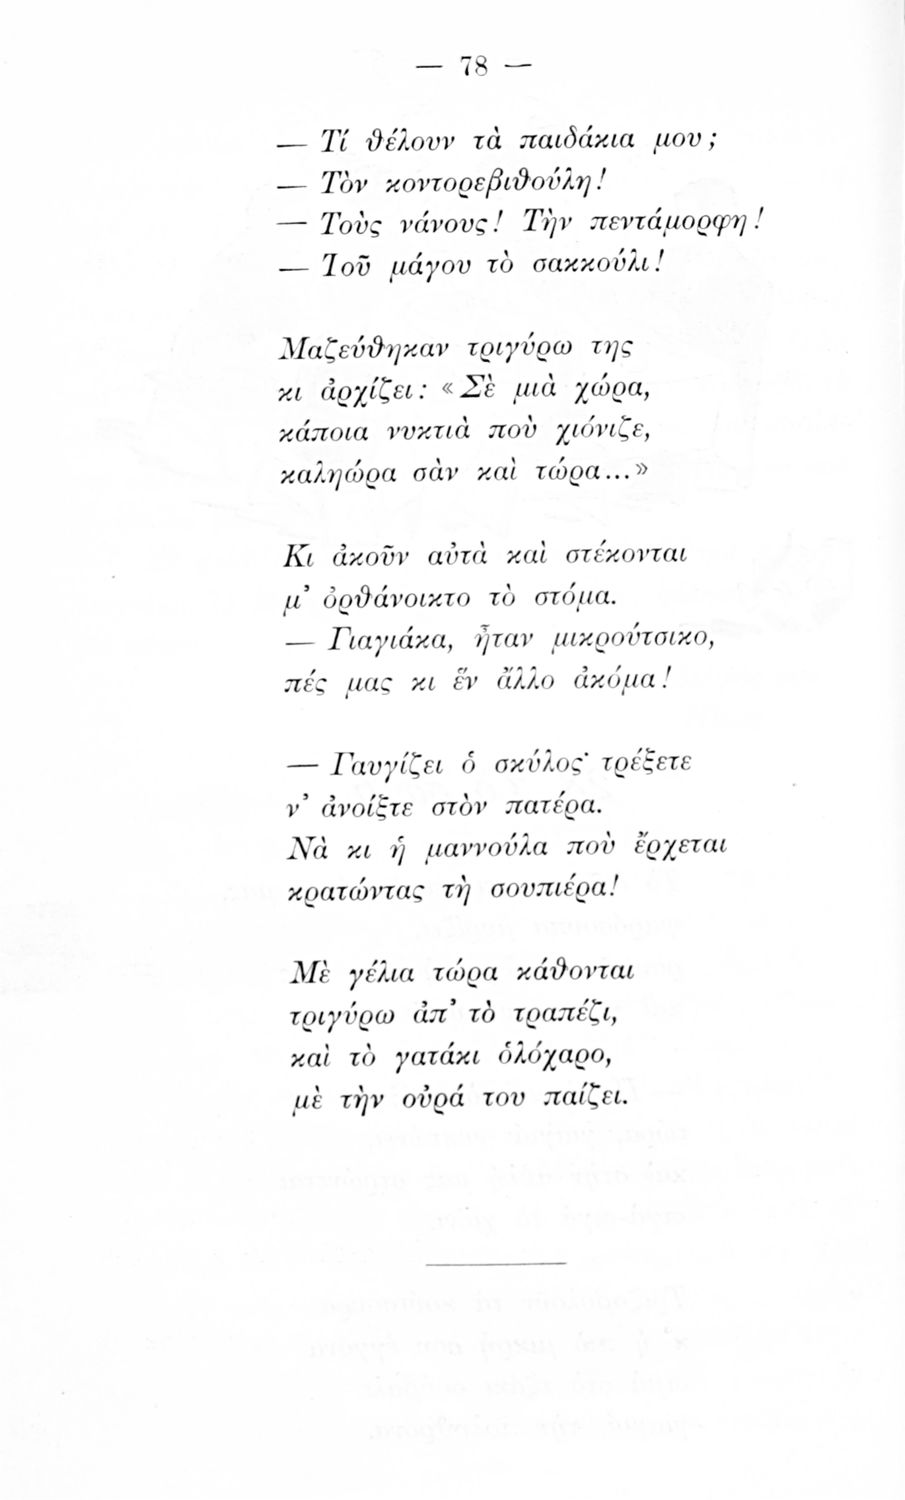 — 78 —
— Τί θέλουν τὰ παιδάκια μου;
— Τὸν κοντορεβιθούλη!
— Τοὺς νάνους! Τὴν πεντάμορφη!
— Τοῦ μάγου τὸ σακκούλι!
Μαζεύθηκαν τριγύρω της
κι ἀρχίζει: «Σὲ μιὰ χώρα,
κάποια νυκτιὰ ποὺ χιόνιζε,
καληώρα σὰν καὶ τώρα...»
Κι ἀκοῦν αὐτὰ καὶ στέκονται
μ’ ὀρθάνοικτο τὸ στόμα.
— Γιαγιάκα, ἦταν μικρούτσικο,
πές μας κι ἓν ἄλλο ἀκόμα!
— Γαυγίζει ὁ σκύλος· τρέξετε
ν’ ἀνοίξτε στὸν πατέρα.
Νὰ κι ἡ μαννούλα ποὺ ἔρχεται
κρατώντας τὴ σουπιέρα!
Μὲ γέλια τώρα κάθονται
τριγύρω ἀπ’ τὸ τραπέζι,
καὶ τὸ γατάκι ὁλόχαρο,
μὲ τὴν οὐρά του παίζει.